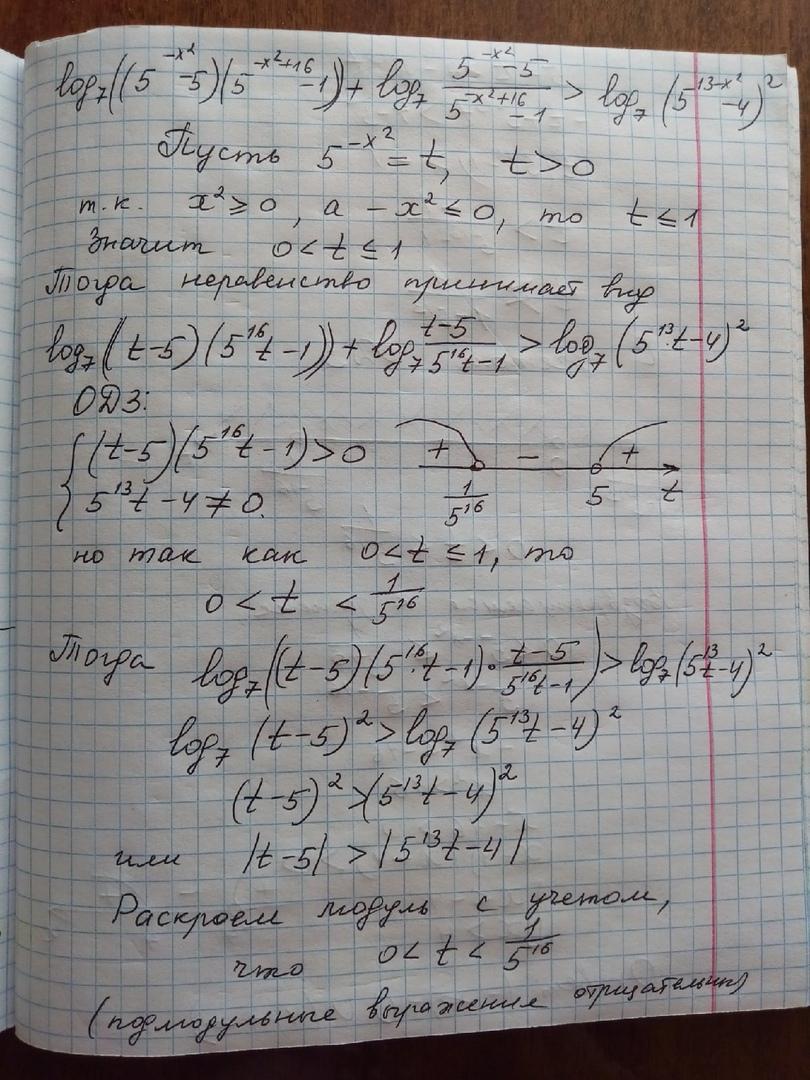 log₇((5^(-x²) - 5)(5^(-x²+16) - 1)) + log₇ (5^(-x²) - 5)/(5^(-x²+16) - 1) > log₇ (5^(13-x²) - 4)²
Пусть 5^(-x²) = t, t > 0
т.к. x² ≥ 0, а -x² ≤ 0, то t ≤ 1
Значит 0 < t ≤ 1
Тогда неравенство принимает вид
log₇((t-5)(5¹⁶t-1)) + log₇ (t-5)/(5¹⁶t-1) > log₇ (5¹³·t-4)²
ОДЗ:
{ (t-5)(5¹⁶t-1) > 0
5¹³t - 4 ≠ 0.
+ - +
1/5¹⁶ 5 t
но так как 0 < t ≤ 1, то
0 < t < 1/5¹⁶
Тогда log₇((t-5)(5¹⁶·t-1)·(t-5)/(5¹⁶t-1)) > log₇(5¹³t-4)²
log₇ (t-5)² > log₇ (5¹³t-4)²
(t-5)² > (5¹³t-4)²
или |t-5| > |5¹³t-4|
Раскроем модуль с учетом,
что 0 < t < 1/5¹⁶
(подмодульные выражения отрицательны)